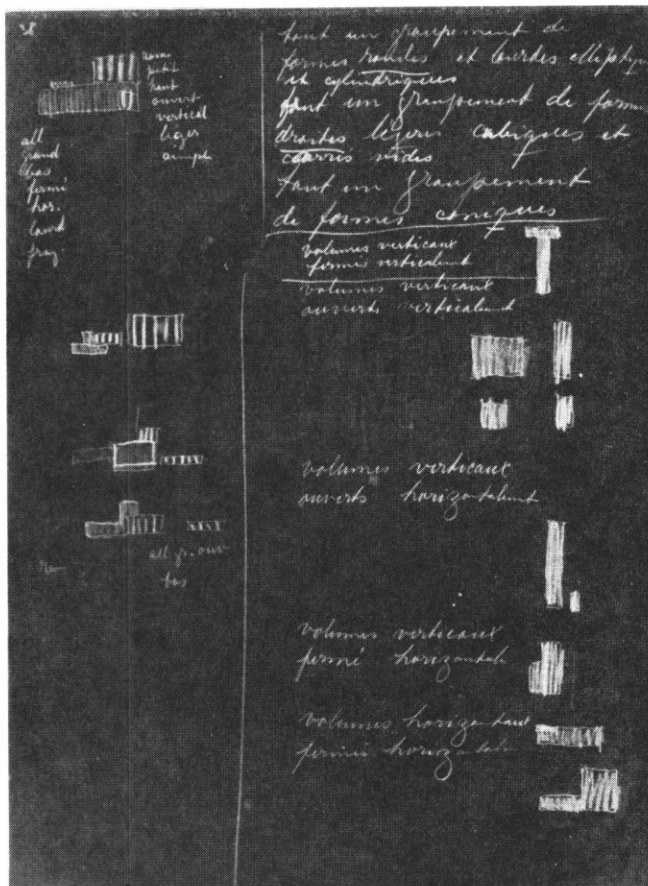 28
ram.
petit
haut
ouvert
vertical
léger
simple
all
grand
bas
fermé
hor.
lourd
all. gr. ouv
bas
tout un groupement de
formes rondes et lourdes elliptiques
et cylindriques
tout un groupement de formes
droites légères cubiques et
carrés vides
tout un groupement
de formes coniques
volumes verticaux
fermés verticalement
volumes verticaux
ouverts verticalement
volumes verticaux
ouverts horizontalement
volumes verticaux
fermé horizontale
volumes horizontaux
fermés horizontale